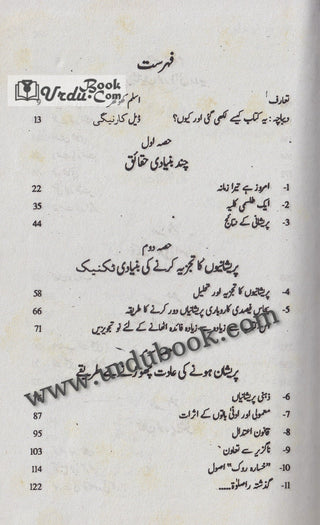 فہرست
UrduBook.Com
تعارف! اسلم
دیباچہ: یہ کتاب کیسے لکھی گئی اور کیوں؟ ڈیل کارنیگی 13
حصہ اول
چند بنیادی حقائق
1- امروز ہے تیرا زمانہ 22
2- ایک طلسمی کلیہ 35
3- پریشانی کے نتائج 44
حصہ دوم
پریشانیوں کا تجزیہ کرنے کی بنیادی ٹکنیک
4- پریشانیوں کا تجزیہ اور تحلیل 58
فیصدی کاروباری پریشانیاں دور کرنے کا طریقہ 66
زیادہ سے زیادہ فائدہ اٹھانے کے لئے نو تجویزیں 71
www.urdubook.com
پریشان ہونے کی عادت چھوڑنے کے طریقے
6- ذہنی پریشانیاں
7- معمولی اور ادنیٰ باتوں کے اثرات 87
8- قانون اعتدال 95
9- ناگزیر سے تعاون 103
10- "خسارہ روک" اصول 114
11- گذشتہ را صلوٰۃ..... 122